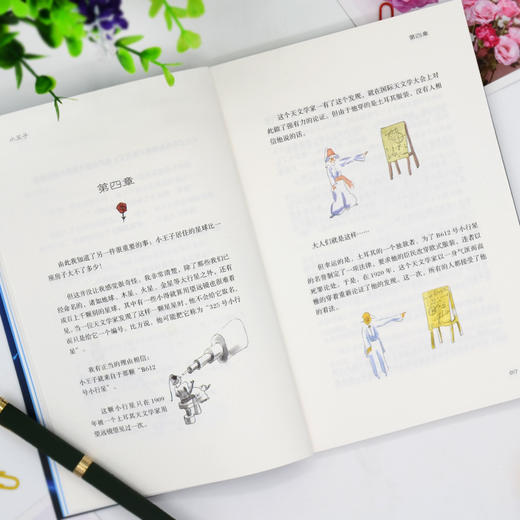 小王子
第四章
由此我知道了另一件很重要的事：小王子居住的星球比一
座房子大不了多少！
但这并没让我感觉很奇怪。我非常清楚，除了那些我们已
经命名的，诸如地球、木星、火星、金星等大行星之外，还有
成百上千颗别的星球，其中有一些小得就算用望远镜也很难看
见。当一位天文学家发现了这样一颗星星时，他不会给它取名，
而只是给它一个编号。比方说，他可能把它称为“325 号小行
星”。
我有正当的理由相信：
小王子就来自于那颗“B612
号小行星”。
这颗小行星只在 1909
年被一个土耳其天文学家用
望远镜望见过一次。
第四章
这个天文学家一有了这个发现，就在国际天文学大会上对
此做了强有力的论证。但由于他穿的是土耳其服装，没有人相
信他说的话。
大人们就是这样……
但幸运的是，土耳其的一个独裁者，为了 B612 号小行星
的名誉制定了一项法律，要求他的臣民改穿欧式服装，违者以
死罪论处。于是，在 1920 年，这个天文学家以一身气派而高
雅的穿戴重新论证了他的发现。这一次，所有的人都接受了他
的看法。
017